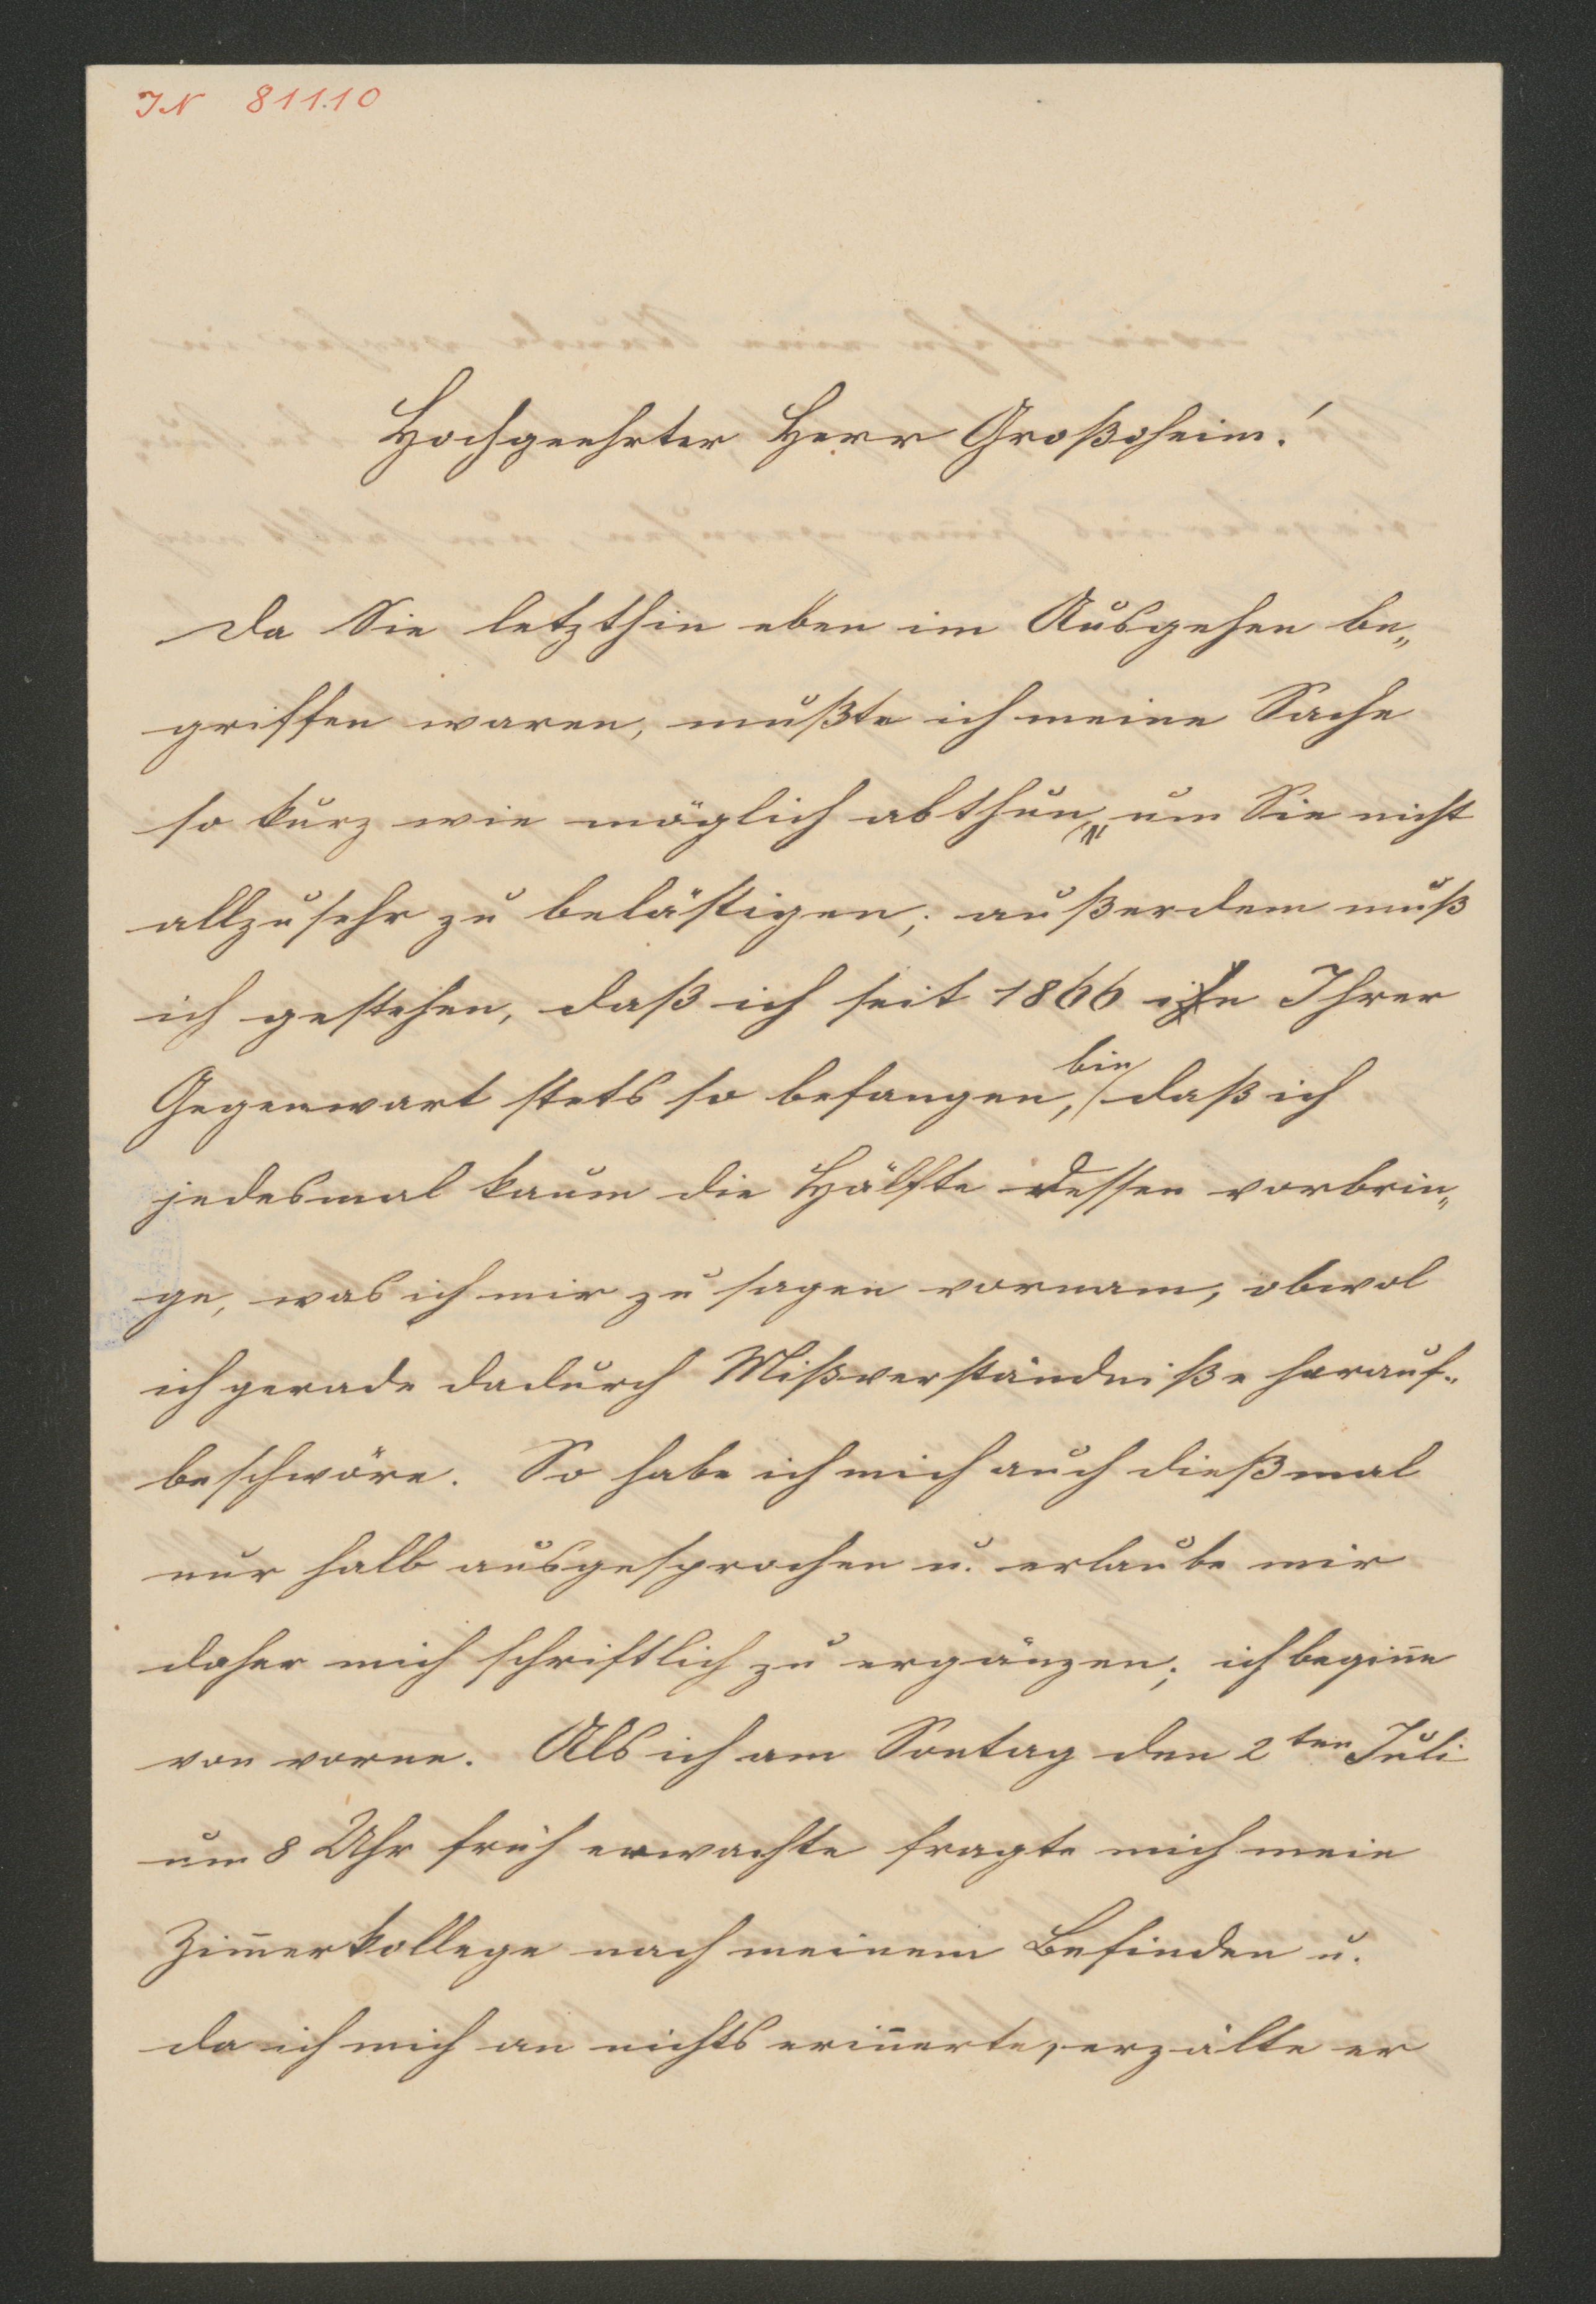 IN 811.10
Hochgeehrter Herr Großoheim!
Da Sie letzthin eben im Ausgehen be„
griffen waren, mußte ich meine Sache
so kurz wie möglich abthun, um Sie nicht
allzusehr zu belästigen; außerdem muß
ich gestehen, daß ich seit 1866 in Ihrer
bin
Gegenwart stets so befangen, daß ich
jedesmal kaum die Hälfte dessen vorbrin„
ge, was ich mir zu sagen vornam, obwol
ich gerade dadurch Mißverständniße herauf„
beschwöre. So habe ich mich auch dießmal
nur halb ausgesprochen u. erlaube mir
daher mich schriftlich zu ergänzen; ich begin̄e
von vorne. Als ich am Sontag den 2ten Juli
um 8 Uhr früh erwachte fragte mich mein
Zim̄erkollege nach meinem Befinden u.
da ich mich an nichts erin̄erte, erzälte er